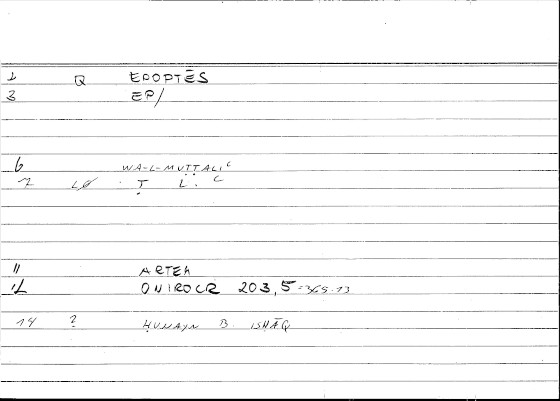 2 Q EPOPTĒS
3 EP/
6 WA-L-MUṬṬALIʿ
7 LØ Ṭ L. ʿ
11 ARTEM
12 ONIROCR 203,5 = 369.13
14 ? ḤUNAYN B. ISḤĀQ